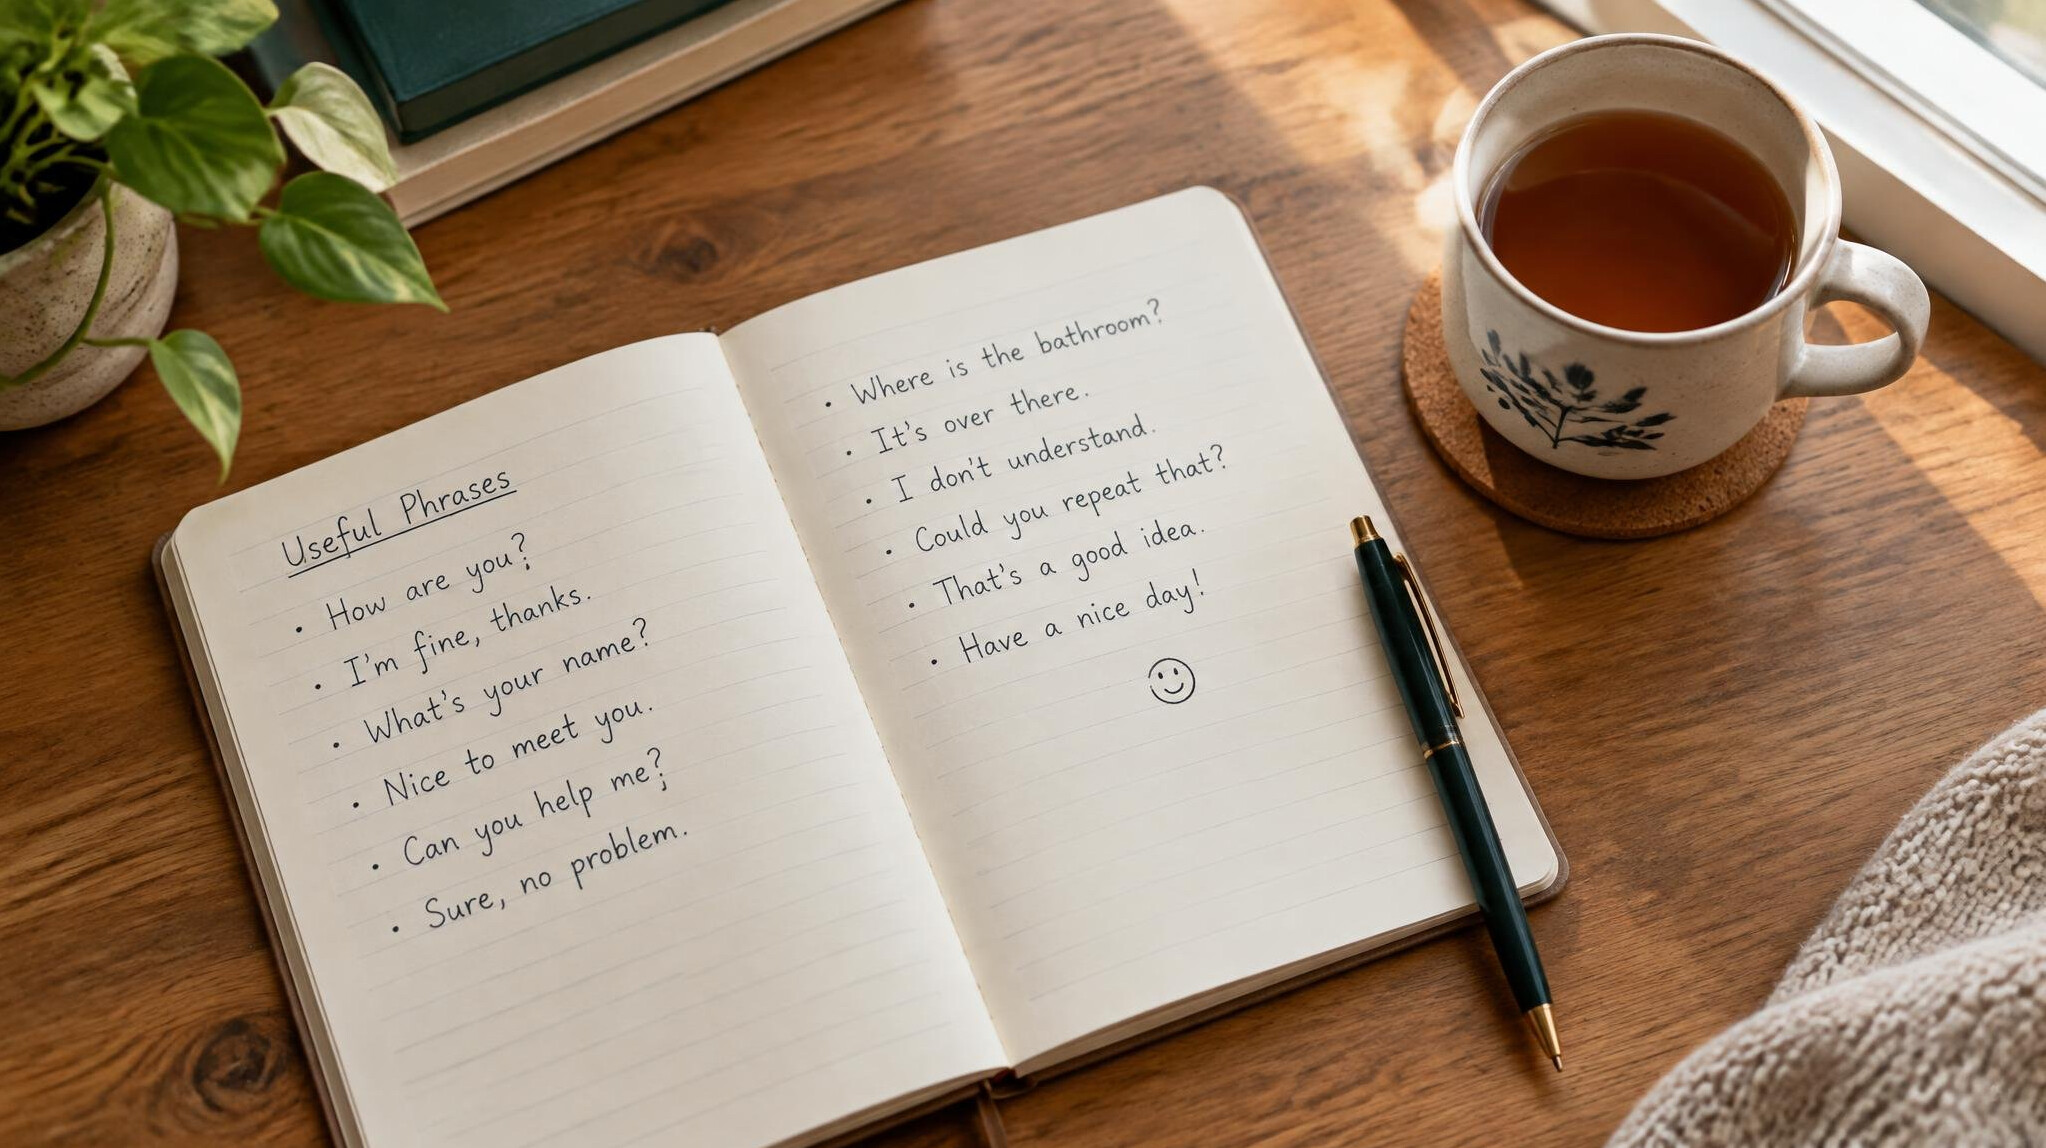 Useful Phrases
• How are you?
• I'm fine, thanks.
• What's your name?
• Nice to meet you.
• Can you help me?
• Sure, no problem.
• Where is the bathroom?
• It's over there.
• I don't understand.
• Could you repeat that?
• That's a good idea.
• Have a nice day!